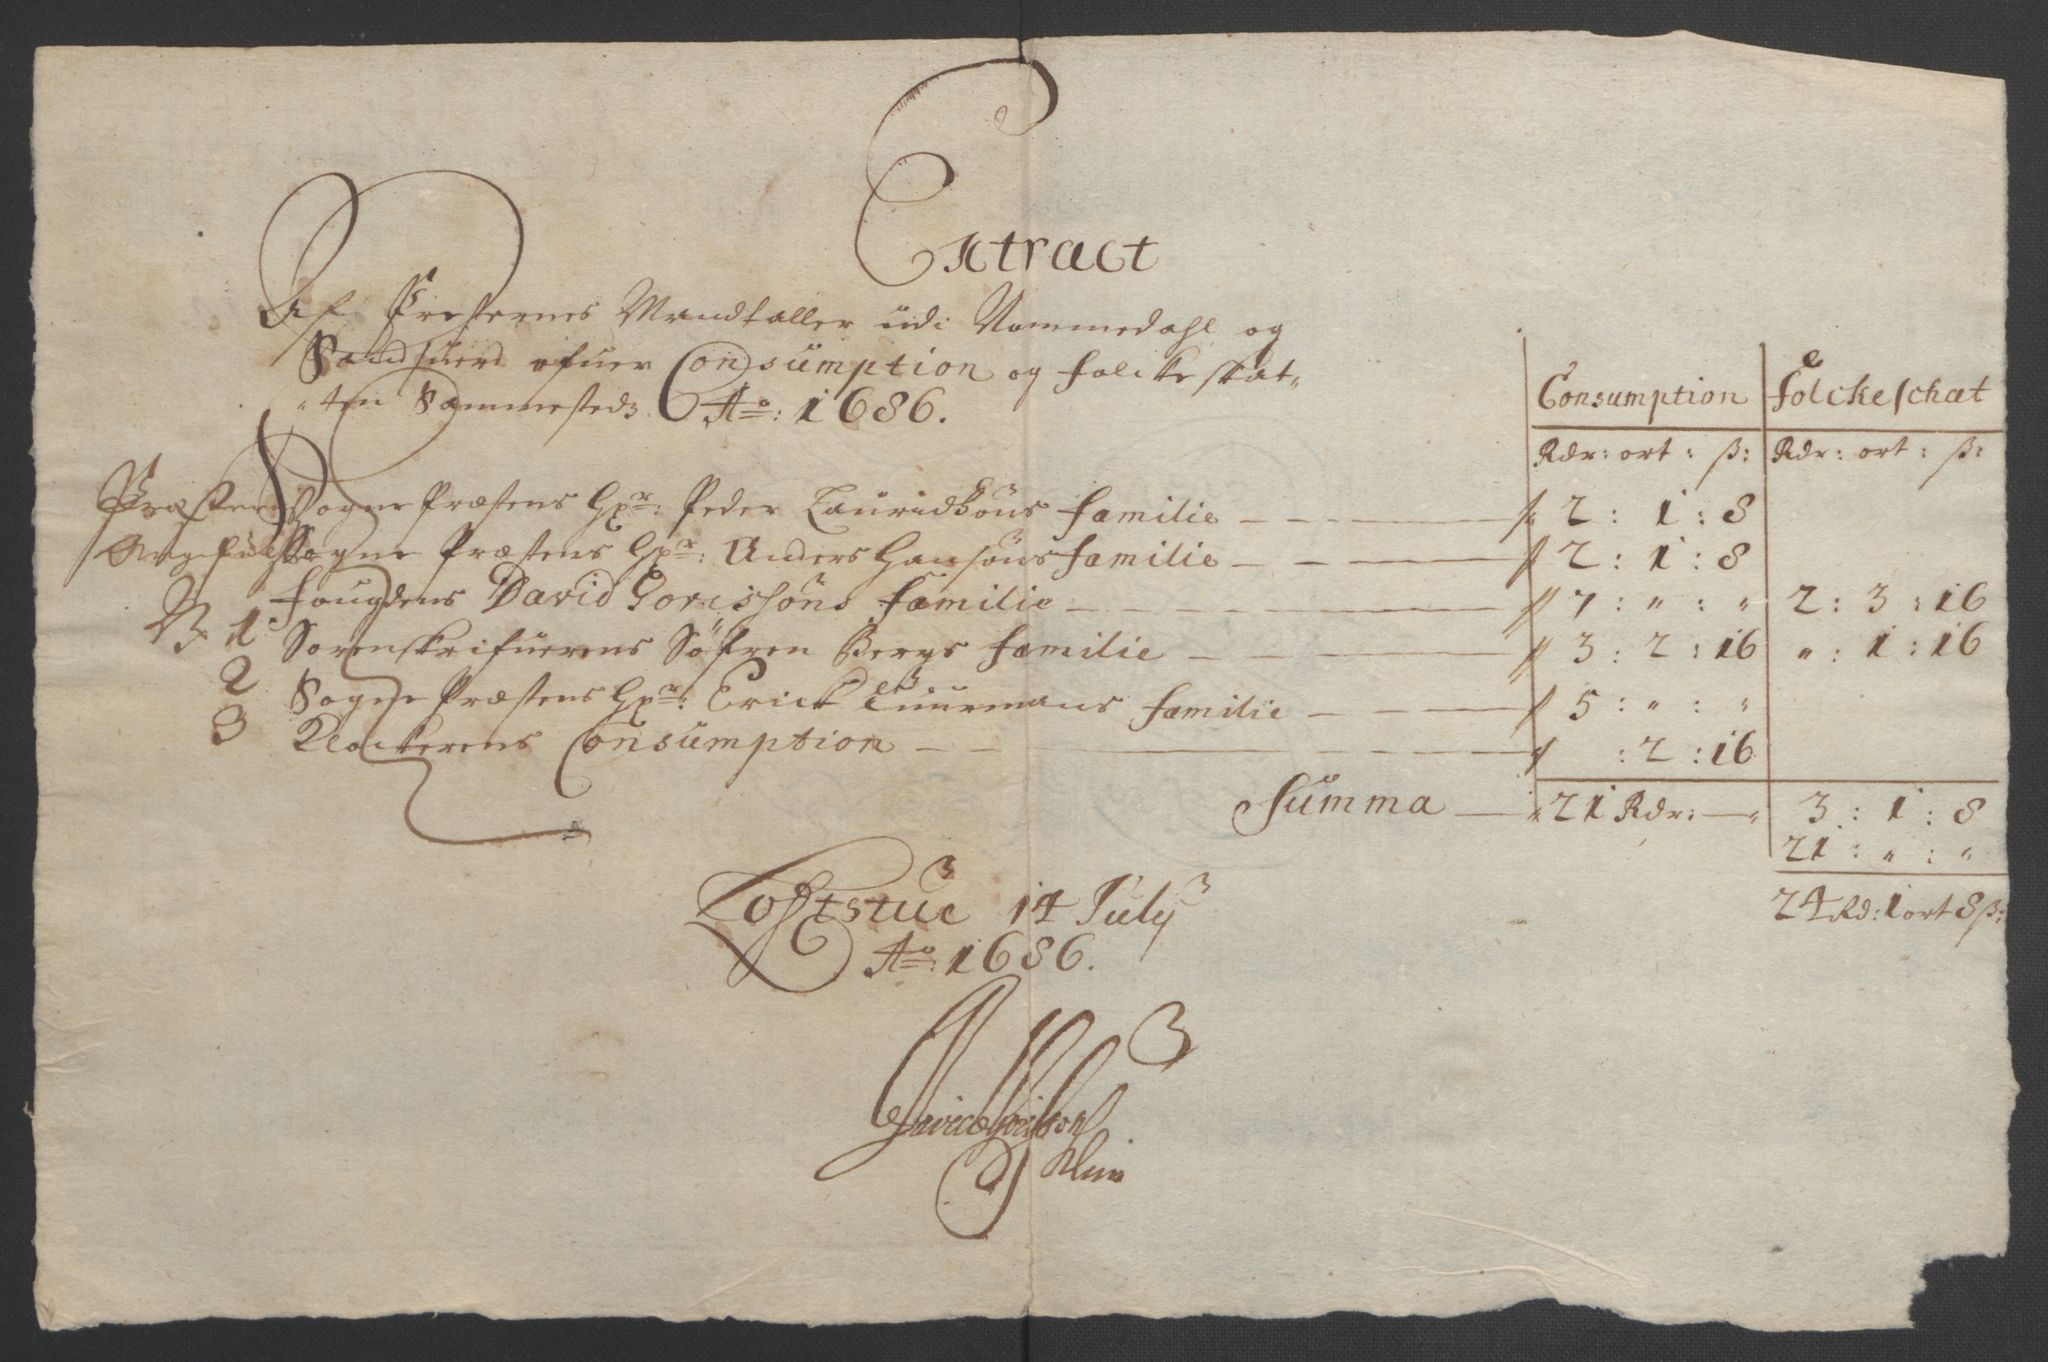 Extract
Af Presternes Mandtaller udi Nommedahl og
Sandsuerd ofuer Consumption og folckeskat-
ten Sammesteds Ao: 1686.
Consumption folckeschat
Rdr: ort: ß: Rdr: ort: ß:
Sogne Præstens Hr: Peder Lauridsøns familie 2: 1: 8
Sogne Præstens Hr: Anders Hansøns familie 2: 1: 8
N 1 fougdens David Gorissøns familie 7: " : " 2: 3: 16
2 Sorenskrifuerens Söfren Bergs familie 3: 2: 16 " : 1: 16
3 Sogne Præstens Hr: Erick familie 5: " : "
Klockerens Consumption : 2: 16
Summa 21 Rdr: 3: 1: 8
21: " : "
24 Rd: 1 ort 8 ß:
Loftstue 14 July
Ao: 1686.
David Gorisson